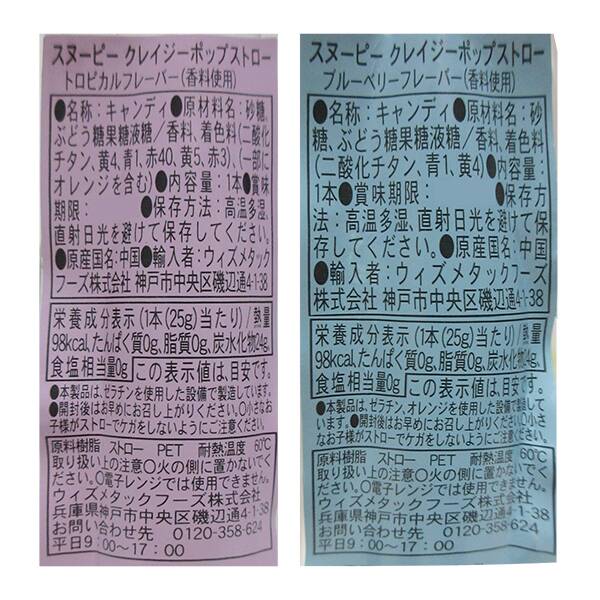 スヌーピー クレイジーポップストロー
トロピカルフレーバー(香料使用)
●名称:キャンディ●原材料名:砂糖、
ぶどう糖果糖液糖/香料、着色料(二酸化
チタン、黄4、青1、赤40、黄5、赤3)、(一部に
オレンジを含む)●内容量:1本●賞味
期限: ●保存方法:高温多湿、
直射日光を避けて保存してください。
●原産国名:中国●輸入者:ウィズメタック
フーズ株式会社 神戸市中央区磯辺通4-1-38
栄養成分表示(1本(25g)当たり)/熱量
98kcal、たんぱく質0g、脂質0g、炭水化物24g、
食塩相当量0g この表示値は、目安です。
●本製品は、ゼラチンを使用した設備で製造しています。
●開封後はお早めにお召し上がりください。○小さなお
子様がストローでケガをしないようにご注意ください。
原料樹脂 ストロー PET 耐熱温度 60℃
取り扱い上の注意○火の側に置かないでく
ださい。○電子レンジでは使用できません。
ウィズメタックフーズ株式会社
兵庫県神戸市中央区磯辺通4-1-38
お問い合わせ先 0120-358-624
平日9:00〜17:00
スヌーピー クレイジーポップストロー
ブルーベリーフレーバー(香料使用)
●名称:キャンディ●原材料名:砂
糖、ぶどう糖果糖液糖/香料、着色料
(二酸化チタン、青1、黄4)●内容量:
1本●賞味期限: ●保存方
法:高温多湿、直射日光を避けて保存
してください。●原産国名:中国
●輸入者:ウィズメタックフーズ
株式会社 神戸市中央区磯辺通4-1-38
栄養成分表示(1本(25g)当たり)/熱量
98kcal、たんぱく質0g、脂質0g、炭水化物24g、
食塩相当量0g この表示値は、目安です。
●本製品は、ゼラチン、オレンジを使用した設備で製造して
います。●開封後はお早めにお召し上がりください。○小さ
なお子様がストローでケガをしないようにご注意ください。
原料樹脂 ストロー PET 耐熱温度 60℃
取り扱い上の注意○火の側に置かないでく
ださい。○電子レンジでは使用できません。
ウィズメタックフーズ株式会社
兵庫県神戸市中央区磯辺通4-1-38
お問い合わせ先 0120-358-624
平日9:00〜17:00